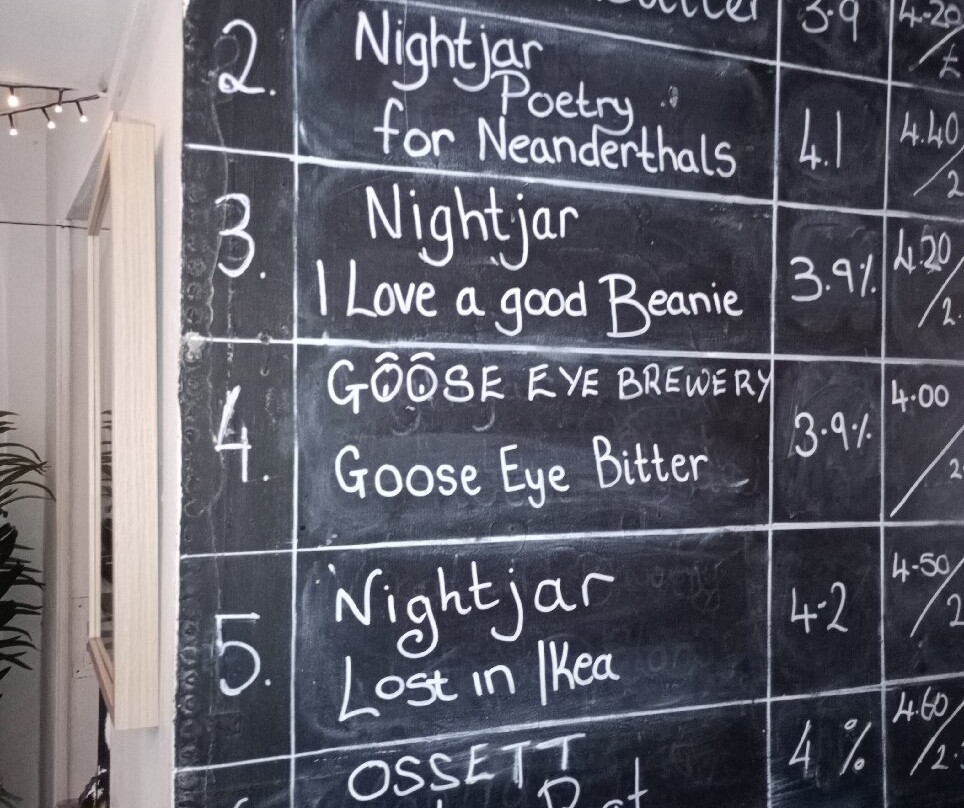 3.9 4.20/
£
2. Nightjar
Poetry
for Neanderthals 4.1 4.40/
2
3. Nightjar
I Love a good Beanie 3.9% 4.20/
2.
4. GÔÔSE EYE BREWERY
Goose Eye Bitter 3.9% 4.00/
2
5. Nightjar
Lost in Ikea 4.2 4.50/
2
OSSETT 4% 4.60/
2.